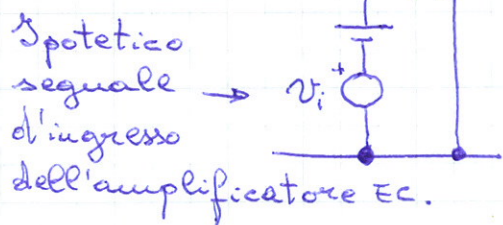 Ipotetico
segnale → vi +
d'ingresso
dell'amplificatore EC.